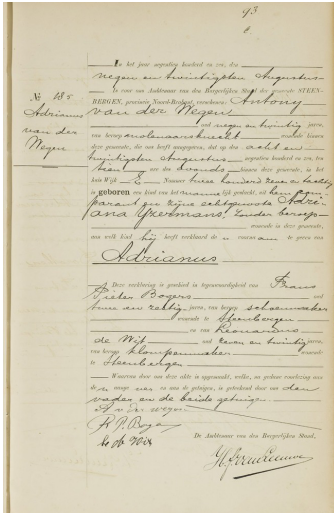 93
In het jaar negentien honderd en zes, den
negen en twintigsten Augustus
is voor ons Ambtenaar van den Burgerlijken Stand der gemeente STEEN-
BERGEN, provincie Noord-Brabant, verschenen: Antony
van der Wegen
oud negen en twintig jaren,
van beroep molenaarsknecht wonende binnen
deze gemeente, die ons heeft aangegeven, dat op den acht en
twintigsten Augustus negentien honderd en zes, ten
tien ure des avonds binnen deze gemeente, in het
huis Wijk E Nummer twee honderd zeven en tachtig
is geboren een kind van het mannelijk geslacht, uit hem com-
parant en zijne echtgenoote Adri-
ana IJzermans, zonder beroep
wonende in deze gemeente,
aan welk kind hij heeft verklaard de voornaam te geven van
Adrianus
Deze verklaring is geschied in tegenwoordigheid van Frans
Pieter Bogers oud
twee en zestig jaren, van beroep schoenmaker
wonende te Steenbergen
en van Leonardus
de Wit oud zeven en twintig jaren,
van beroep klompenmaker wonende
te Steenbergen
Waarvan door ons deze akte is opgemaakt, welke, na gedane voorlezing aan
de en aan de getuigen, is geteekend door ons den
vader en de beide getuigen
A v der wegen
De Ambtenaar van den Burgerlijken Stand,
No 185
Adrianus
van der
Wegen